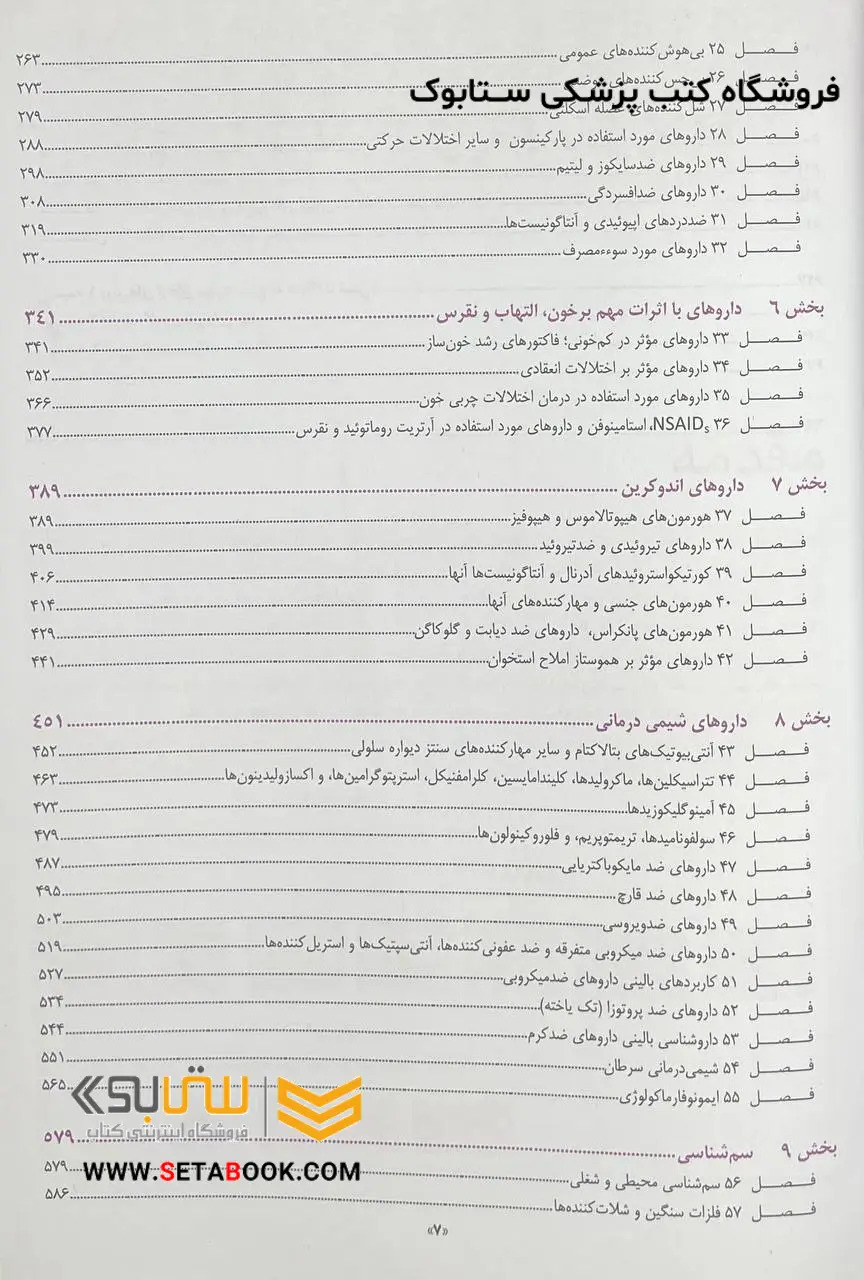 فصل ۲۵ بی‌هوش‌کننده‌های عمومی ۲۶۳
فصل ۲۶ حس‌کننده‌های ۲۷۳
فروشگاه کتب پزشکی ستابوک
فصل ۲۷ شل‌کننده‌های عضله اسکلتی ۲۷۹
فصل ۲۸ داروهای مورد استفاده در پارکینسون و سایر اختلالات حرکتی ۲۸۸
فصل ۲۹ داروهای ضدسایکوز و لیتیم ۲۹۸
فصل ۳۰ داروهای ضدافسردگی ۳۰۸
فصل ۳۱ ضددردهای اپیوئیدی و آنتاگونیست‌ها ۳۱۹
فصل ۳۲ داروهای مورد سوءمصرف ۳۳۰
بخش ۶ داروهای با اثرات مهم برخون، التهاب و نقرس ۳۴۱
فصل ۳۳ داروهای مؤثر در کم‌خونی؛ فاکتورهای رشد خون‌ساز ۳۴۱
فصل ۳۴ داروهای مؤثر بر اختلالات انعقادی ۳۵۲
فصل ۳۵ داروهای مورد استفاده در درمان اختلالات چربی خون ۳۶۶
فصل ۳۶ NSAIDs، استامینوفن و داروهای مورد استفاده در آرتریت روماتوئید و نقرس ۳۷۷
بخش ۷ داروهای اندوکرین ۳۸۹
فصل ۳۷ هورمون‌های هیپوتالاموس و هیپوفیز ۳۸۹
فصل ۳۸ داروهای تیروئیدی و ضدتیروئید ۳۹۹
فصل ۳۹ کورتیکواستروئیدهای آدرنال و آنتاگونیست‌ها آنها ۴۰۶
فصل ۴۰ هورمون‌های جنسی و مهارکننده‌های آنها ۴۱۴
فصل ۴۱ هورمون‌های پانکراس، داروهای ضد دیابت و گلوکاگن ۴۲۹
فصل ۴۲ داروهای مؤثر بر هموستاز املاح استخوان ۴۴۱
بخش ۸ داروهای شیمی درمانی ۴۵۱
فصل ۴۳ آنتی‌بیوتیک‌های بتالاکتام و سایر مهارکننده‌های سنتز دیواره سلولی ۴۵۲
فصل ۴۴ تتراسیکلین‌ها، ماکرولیدها، کلیندامایسین، کلرامفنیکل، استرپتوگرامین‌ها، و اکسازولیدینون‌ها ۴۶۳
فصل ۴۵ آمینوگلیکوزیدها ۴۷۳
فصل ۴۶ سولفونامیدها، تریمتوپریم، و فلوروکینولون‌ها ۴۷۹
فصل ۴۷ داروهای ضد مایکوباکتریایی ۴۸۷
فصل ۴۸ داروهای ضد قارچ ۴۹۵
فصل ۴۹ داروهای ضدویروسی ۵۰۳
فصل ۵۰ داروهای ضد میکروبی متفرقه و ضد عفونی‌کننده‌ها، آنتی‌سپتیک‌ها و استریل‌کننده‌ها ۵۱۹
فصل ۵۱ کاربردهای بالینی داروهای ضدمیکروبی ۵۲۷
فصل ۵۲ داروهای ضد پروتوزا (تک یاخته) ۵۳۴
فصل ۵۳ داروشناسی بالینی داروهای ضدکرم ۵۴۴
فصل ۵۴ شیمی‌درمانی سرطان ۵۵۱
فصل ۵۵ ایمونوفارماکولوژی ۵۶۵
ستابوک
فروشگاه اینترنتی کتاب
بخش ۹ سم‌شناسی ۵۷۹
WWW.SETABOOK.COM
فصل ۵۶ سم‌شناسی محیطی و شغلی ۵۷۹
فصل ۵۷ فلزات سنگین و شلات‌کننده‌ها ۵۸۶
«۷»